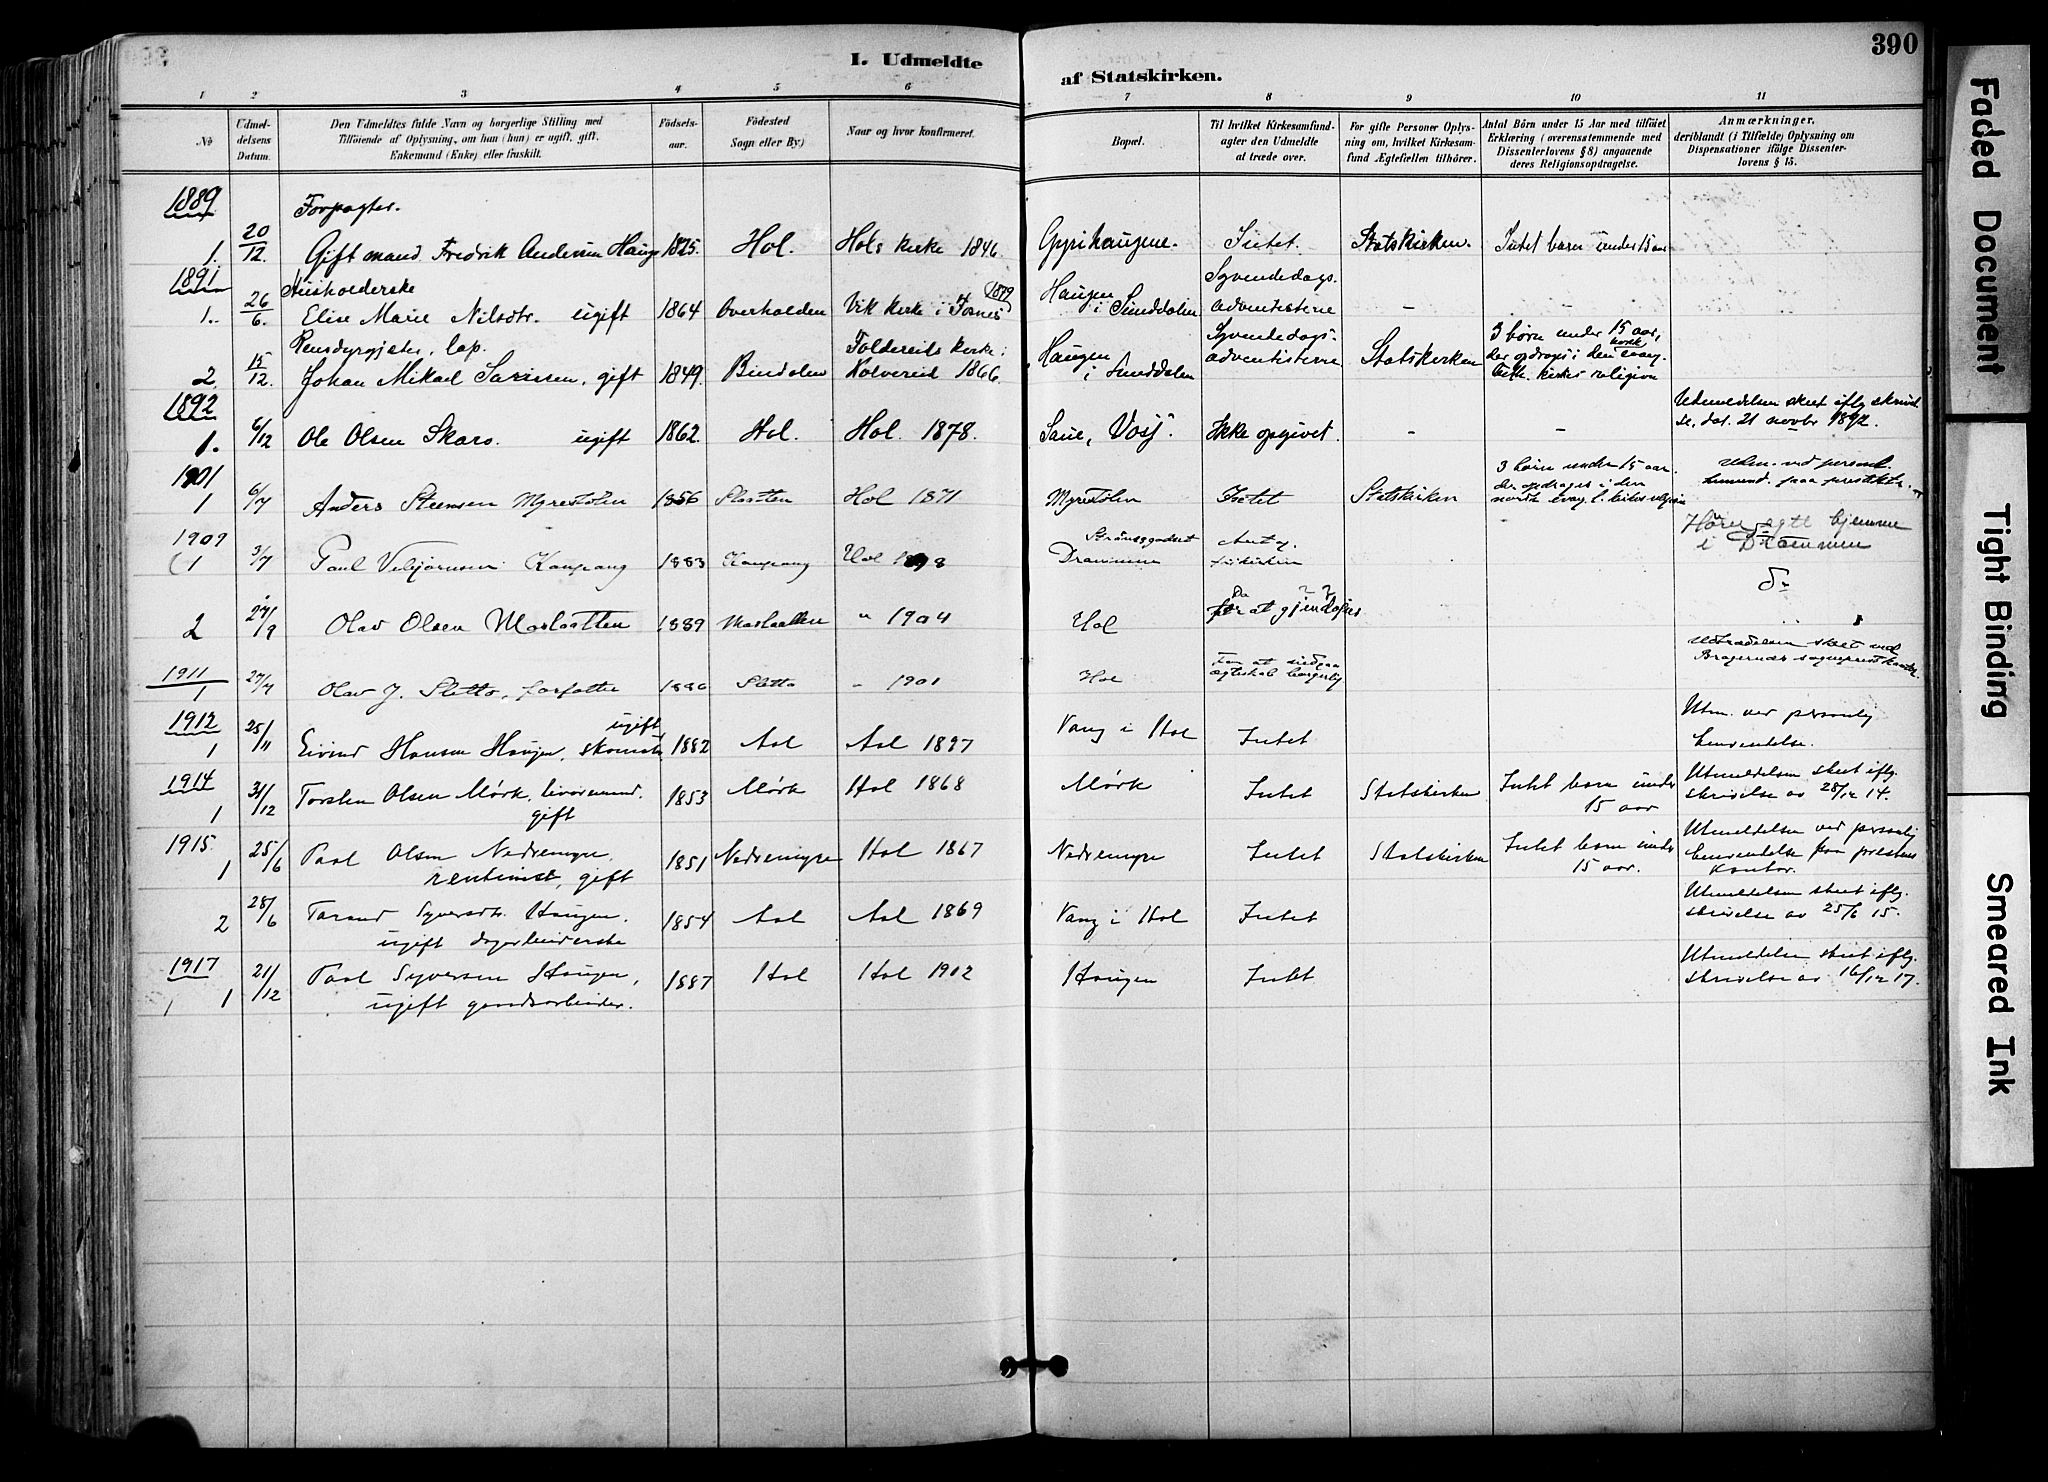 390
I. Udmeldte af Statskirken.
1 2 3 4 5 6 7 8 9 10 11
No
Udmeldelsens Datum.
Den Udmeldtes fulde Navn og borgerlige Stilling med
Tilföiende af Oplysning, om han (hun) er ugift, gift,
Enkemand (Enke) eller fraskilt.
Födselsaar.
Födested
Sogn eller By)
Naar og hvor konfirmeret.
Bopæl.
Til hvilket Kirkesamfund-
agter den Udmeldte
at træde over.
For gifte Personer Oplys-
ning om, hvilket Kirkesam-
fund Ægtefællen tilhörer.
Antal Börn under 15 Aar med tilföiet
Erklæring (overensstemmende med
Dissenterlovens § 8) angaaende
deres Religionsopdragelse.
Anmærkninger,
deriblandt (i Tilfælde) Oplysning om
Dispensationer ifölge Dissenter-
lovens § 15.
1889
Forpagter.
1. 20/12. Gift mand Fredrik Andersen Hauge 1825. Hol. Hols kirke 1846. Gyrihaugene. Intet. Statskirken. Intet barn under 15 aar
1891
Husholderske
1. 26/6. Elise Marie Nilsdtr. ugift 1864 Overhalden Vik kirke i Fosnes 1879 Haugen i Sunddalen Syvendedags adventisterne – –
Rensdyrgjæter, lap.
2. 15/12. Johan Mikael Sarissen, gift 1849. Bindalen Foldereids kirke i Kolvereid 1866. Haugen i Sunddalen Syvendedags-adventisterne Statskirken 3 børn under 15 aar, der opdrages i den norsk evang. luth. kirkes religion
1892
1. 6/12 Ole Olsen Skaro. ugift 1862. Hol. Hol. 1878. Ikke opgivet. – – Udmeldelsen skeet iflg skrivelse, dat. 21 novbr 1892.
1901
1 6/7 Anders Steensen Myrestølen 1856 Slaatten Hol 1871 Myrestølen Intet Statskirken 3 børn under 15 aar. der opdrages i den norske evang. l. kirkes religion
1909
1 3/7 Paul Vebjørnsen Kaupang 1883 Kaupang Hol 1898 Strømsgodset Drammen frikirken hjemme i Drammen
2 27/9 Olav Olsen Maslaatten 1889 Maslaatten " 1904 Hol for at gjendøbes do
1911
1 27/7 Olav J. Sletto, forfatter 1886 Sletto " 1901 Hol For at indgaa ægteskab borgerlig Udtrædelsen skeet ved Bragernes sogneprestkontor
1912
1 25/11 Eivind Hansen Haugen, skomaker ugift 1882 Aal Aal 1897 Vang i Hol Intet Utm. ved personlig henvendelse.
1914
1 31/12 Torsten Olsen Mørk, livøremand. gift 1853 Mørk Hol 1868 Mørk Intet Statskirken Intet barn under 15 aar Utmeldelsen skeet iflg. skrivelse av 28/12 14.
1915
1 25/6 Paal Olsen Nedremyre, rentenist, gift 1851 Nedremyre Hol 1867 Nedremyre Intet Statskirken Intet barn under 15 aar. Utmeldelsen ved personlig henvendelse paa prestens kontor.
2 28/6 Tarand Syversdtr. Haugen. ugift dagarbeiderske 1854 Aal Aal 1869 Vang i Hol Intet Utmeldelsen skeet iflg. skrivelse av 25/6 15.
1917
1 21/12 Paal Syversen Haugen, ugift gaardsarbeider. 1887 Hol Hol 1902 Haugen Intet Utmeldelsen skeet iflg. skrivelse av 16/12 17.
Faded Document
Tight Binding
Smeared Ink